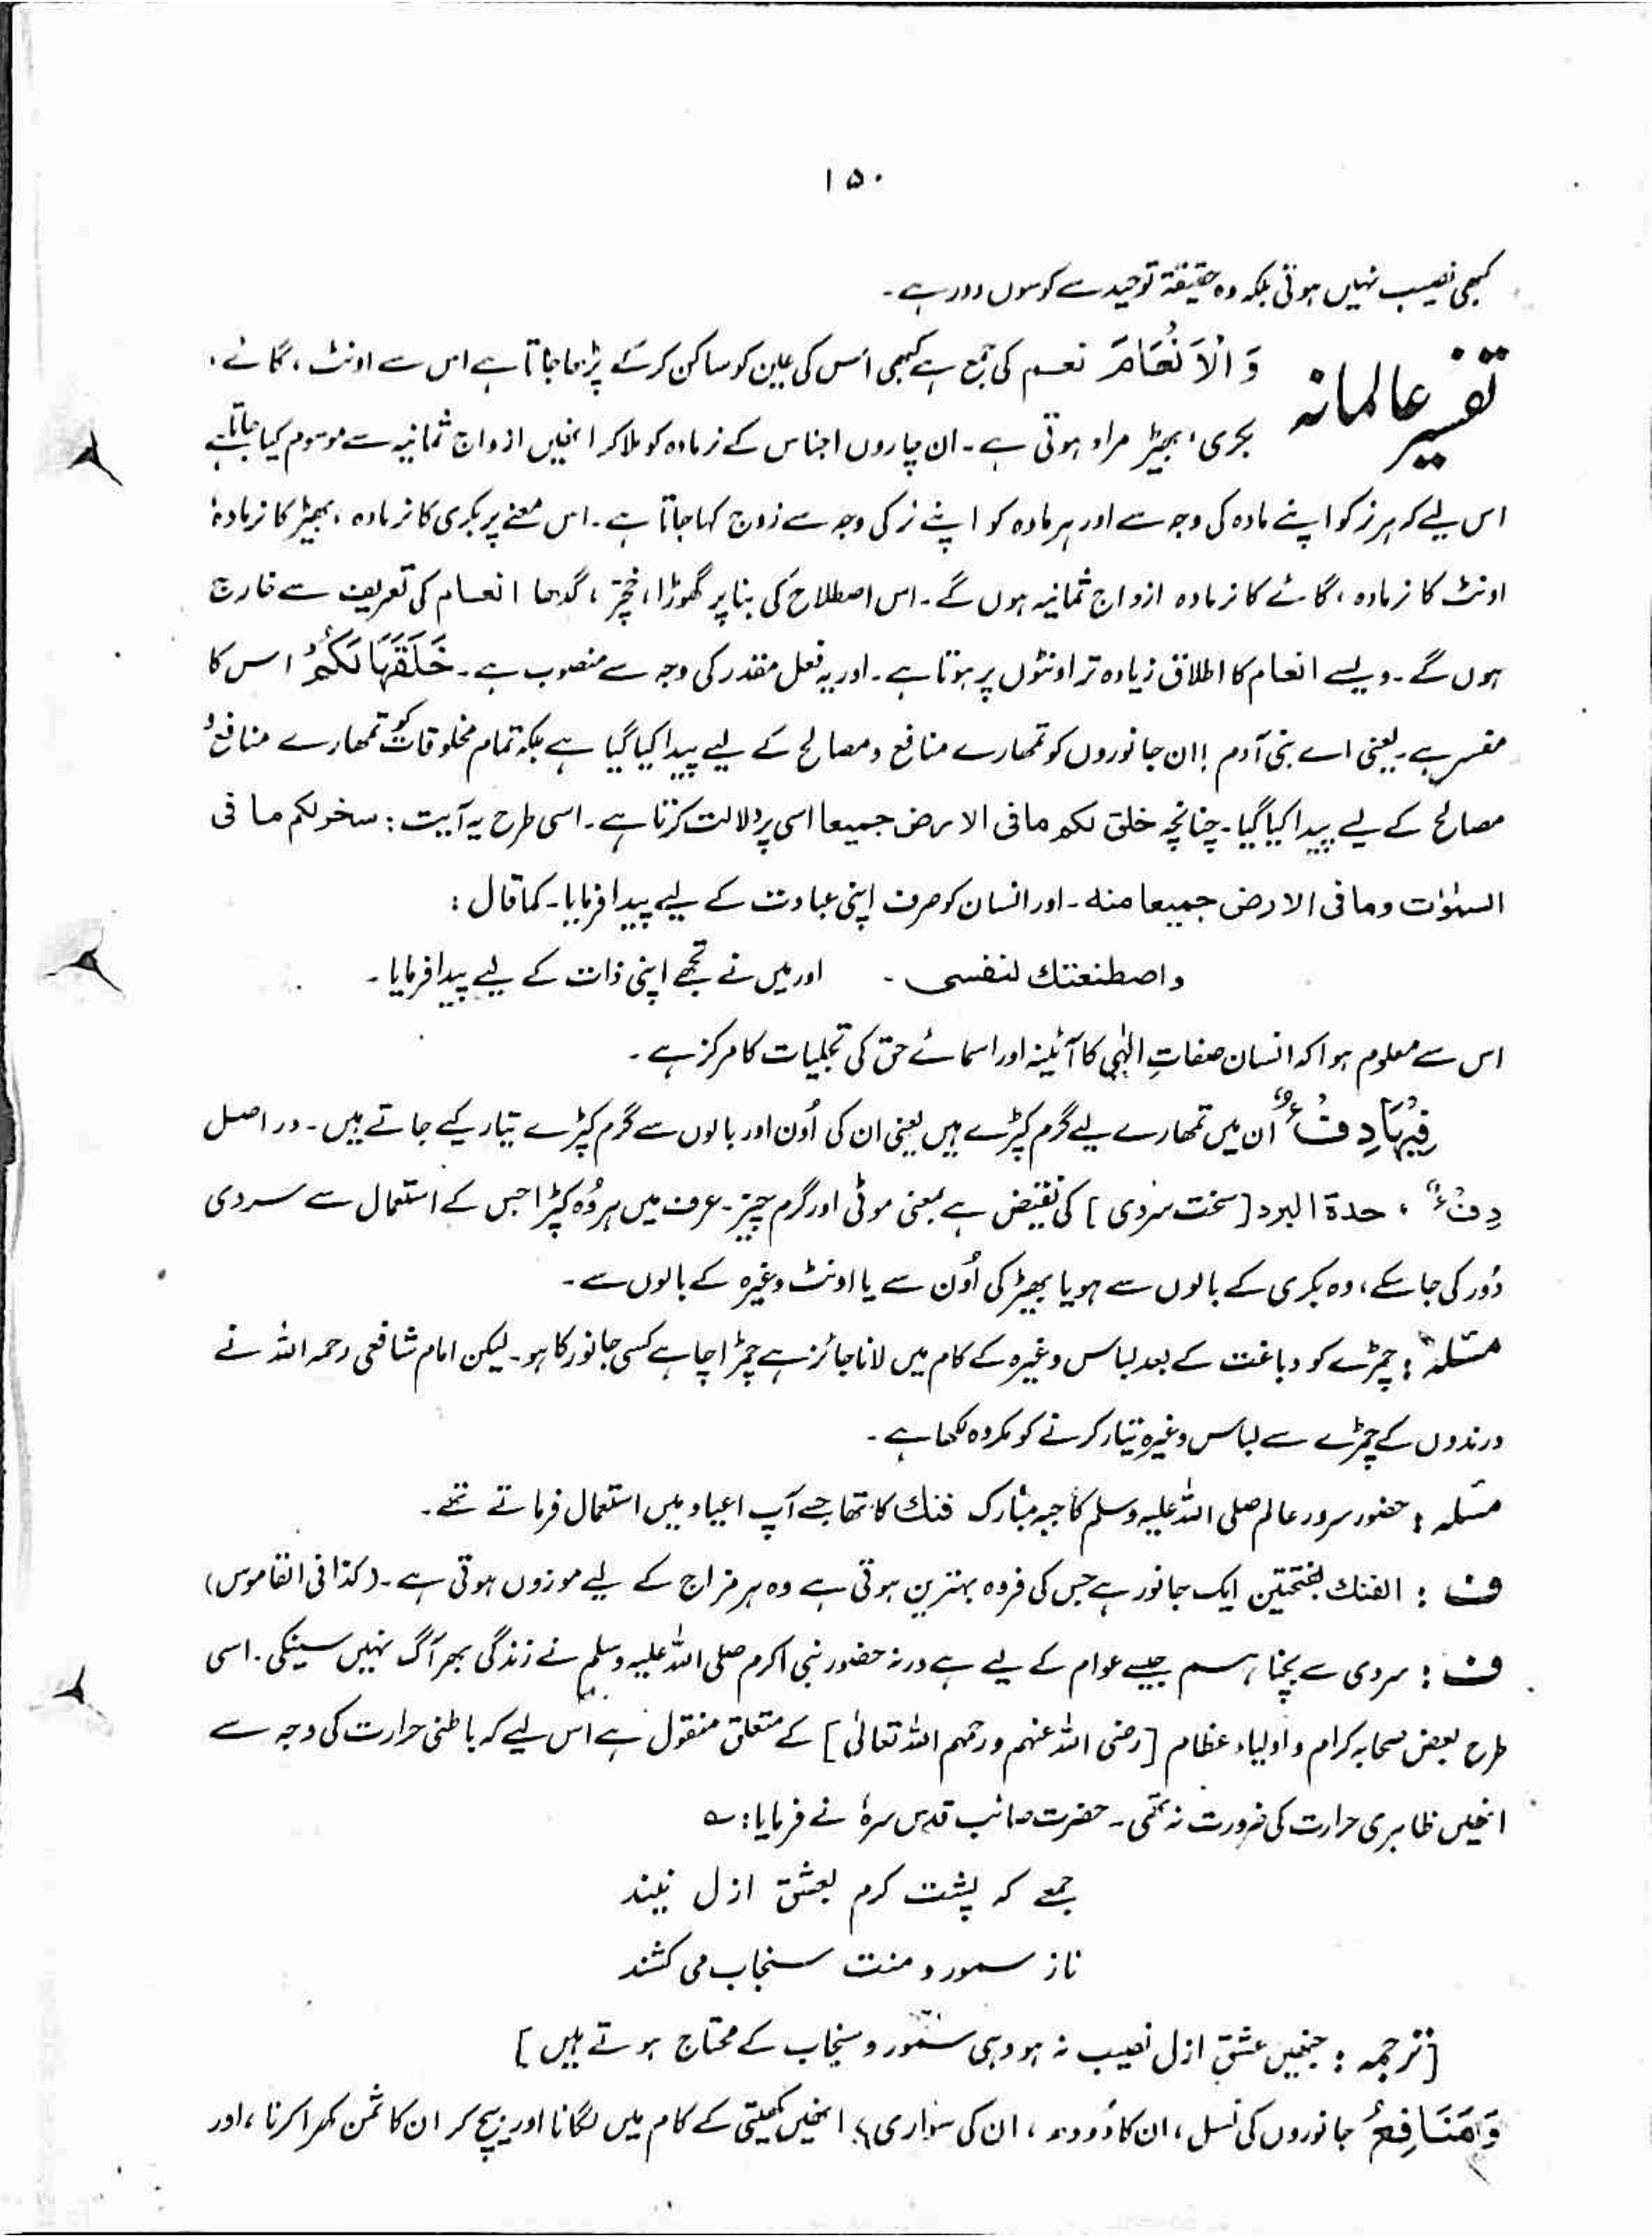 ۱۵۰
کبھی نصیب نہیں ہوتی بلکہ وہ حقیقۃً توحید سے کوسوں دور ہے۔
تفسیر عالمانہ
وَالْاَنْعَامَ نعم کی جمع ہے کبھی اس کی عین کو ساکن کر کے پڑھا جاتا ہے اس سے اونٹ، گائے،
بکری، بھیڑ مراد ہوتی ہے۔ ان چاروں اجناس کے نر مادہ کو ملا کر انھیں ازواج ثمانیہ سے موسوم کیا جاتا ہے
اس لیے کہ ہر نر کو اپنے مادہ کی وجہ سے اور ہر مادہ کو اپنے نر کی وجہ سے زوج کہا جاتا ہے۔ اس معنے پر بکری کا نر مادہ، بھیڑ کا نر مادہ
اونٹ کا نر مادہ، گائے کا نر مادہ ازواج ثمانیہ ہوں گے۔ اس اصطلاح کی بنا پر گھوڑا، خچر، گدھا انعام کی تعریف سے خارج
ہوں گے۔ ویسے انعام کا اطلاق زیادہ تر اونٹوں پر ہوتا ہے۔ اور یہ فعل مقدر کی وجہ سے منصوب ہے۔ خَلَقَهَا لَكُمْ اس کا
مفسر ہے۔ یعنی اے بنی آدم! ان جانوروں کو تمھارے منافع و مصالح کے لیے پیدا کیا گیا ہے بلکہ تمام مخلوقات کو تمھارے منافع و
مصالح کے لیے پیدا کیا گیا۔ چنانچہ خلق لکم مافی الارض جمیعا اسی پر دلالت کرتا ہے۔ اسی طرح یہ آیت: سخر لکم ما فی
السمٰوٰت وما فی الارض جمیعا منه۔ اور انسان کو صرف اپنی عبادت کے لیے پیدا فرمایا۔ کما قال:
واصطنعتك لنفسی۔ اور میں نے تجھے اپنی ذات کے لیے پیدا فرمایا۔
اس سے معلوم ہوا کہ انسان صفاتِ الٰہی کا آئینہ اور اسمائے حق کی تجلیات کا مرکز ہے۔
فِيْهَا دِفْءٌ اُن میں تمھارے لیے گرم کپڑے ہیں یعنی ان کی اُون اور بالوں سے گرم کپڑے تیار کیے جاتے ہیں۔ در اصل
دِفْءٌ، حدة البرد [سخت سردی] کی نقیض ہے بمعنی موٹی اور گرم چیز۔ عرف میں ہر وُہ کپڑا جس کے استعمال سے سردی
دُور کی جا سکے، وہ بکری کے بالوں سے ہو یا بھیڑ کی اُون سے یا اونٹ وغیرہ کے بالوں سے۔
مسئلہ: چمڑے کو دباغت کے بعد لباس وغیرہ کے کام میں لانا جائز ہے چمڑا چاہے کسی جانور کا ہو۔ لیکن امام شافعی رحمہ اللہ نے
درندوں کے چمڑے سے لباس وغیرہ تیار کرنے کو مکروہ لکھا ہے۔
مسئلہ: حضور سرور عالم صلی اللہ علیہ وسلم کا جبہ مبارک فنك کا تھا جسے آپ اعیاد میں استعمال فرماتے تھے۔
ف: الفنك بفتحتین ایک جانور ہے جس کی فروہ بہترین ہوتی ہے وہ ہر مزاج کے لیے موزوں ہوتی ہے۔ (کذا فی القاموس)
ف: سردی سے بچنا ہم جیسے عوام کے لیے ہے ورنہ حضور نبی اکرم صلی اللہ علیہ وسلم نے زندگی بھر آگ نہیں سینکی۔ اسی
طرح بعض صحابہ کرام و اولیاء عظام [رضی اللہ عنہم و رحمہم اللہ تعالیٰ] کے متعلق منقول ہے اس لیے کہ باطنی حرارت کی وجہ سے
انھیں ظاہری حرارت کی ضرورت نہ تھی۔ حضرت صائب قدس سرہٗ نے فرمایا: ؎
جمعے کہ پشت گرم بعشق ازل نیند
ناز سمور و منت سنجاب می کشند
[ترجمہ: جنھیں عشقِ ازل نصیب نہ ہو وہی سمور و سنجاب کے محتاج ہوتے ہیں]
وَمَنَافِعُ جانوروں کی نسل، ان کا دُودھ، ان کی سواری، انھیں کھیتی کے کام میں لگانا اور بیچ کر ان کا ثمن کھرا کرنا، اور